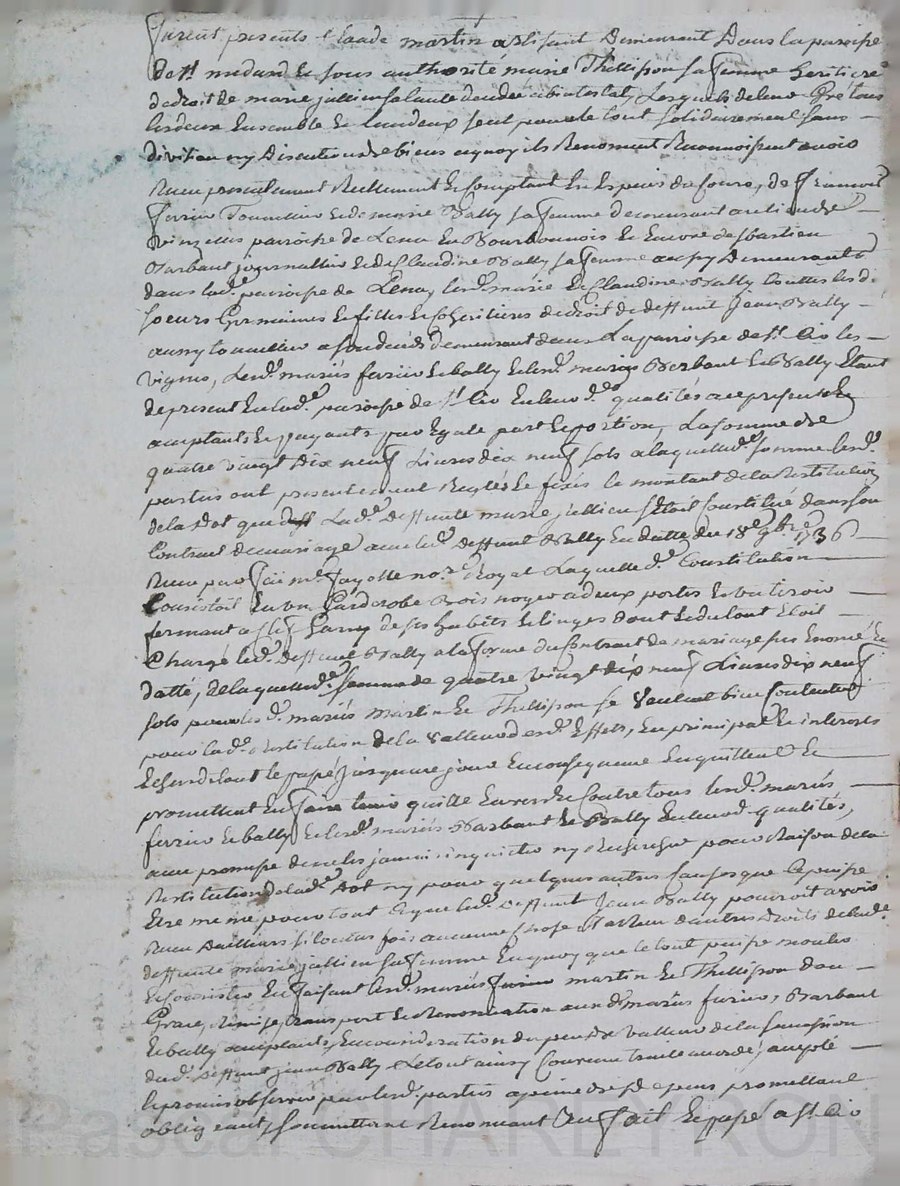 furent presents Claude martin artisant Demeurant Dans la paroisse
de st medard et sous authorité marie Thellisson sa femme heritiere
de droit de marie jullien sa tante decedée abintestat, Lesquels de leur Gré tous
les deux Ensemble et un deux seul pour le tout solidairement sans
division ny Discution de biens aquoy ils Renoncent Reconnoissent avoir
Receu presentement Reellement et Comptant En Especes du Cours, de francois
ferrier Tonnellier et de marie Bally sa femme demeurant au lieu de
paroisse de Lenax En Bourbonnois et Encore de sbastien
Barbant journallier et de Claudine Bally sa femme aussy Demeurants
dans lad.e parroisse de Lenax, lesd. marie et Claudine Bally touttes les d.
soeurs Germaines et filles et Coheritieres de droit de deffunt Jean Bally
aussy tonnellier a son deceds demeurant dans La paroisse de st. Cir les
vignes, Lesd. mariés ferrier et bally et lesd. mariés Barbant et Bally Etant
de present En lad.e paroisse de st Cir En leursd. qualités acce presents et
acceptants et payants par Egale part et portion, La somme de
quatre vingt Dix neuf Livres dix neuf sols a laquelle d. somme lesd.
parties ont presentement Reglés et fixés le montant de la Restitution
de la Dot que Lad.e Deffunte marie jullien s'Etoit Constitué dans son
Contract de mariage avec led. deffunt Bally En datte du 18e 9bre 1736
Receu par feu me fayolle no.re Royal Laquelle d. Constitution
Consistoit En un Garderobe Bois noyer a deux portes et un tiroir
fermant a clef Garny de ses habits et linges Dont et du tout Etoit
Chargé led. Deffunt Bally a la forme du Contract de mariage sus Enoncé et
datté, de laquelle d. somme de quatre vingt dix neuf Livres dix neuf
sols pour lesd. mariés martin et Thellisson se Veulent bien Contenter
pour lad.e restitution de la valleur desd. Effets, En principal et interests
Et sur du tout le passé jusqua ce jour En consequence En quittent et
promettent En faire tenir quitte Envers et Contre tous lesd. mariés
ferrier et bally et lesd. mariés Barbant et Bally En leursd. qualités,
avec promesse de ne les jamais inquietter ny Rechercher pour Raison de la
Restitution de lad.e Dot ny pour quelques autres Causes que ce puisse
Etre meme pour tout ce que led. deffunt Jean Bally pourroit avoir
Receu Dailleurs si toutes fois aucune Chose Etat et dautres Droits de lad.e
deffunte marie jullien sa femme En quoy que le tout puisse monter
et Consister En faisant lesd. mariés martin et Thellisson don
Grace, Remise, transport et Renonciation aux d. mariés ferrier, Barbant
et bally acceptants, En consideration du peu de valleur de la succession
dud. deffunt jean Bally Le tout ainsy Convenu traité accordé, accepté
et promis observer par lesd. parties a peine de despens promettant
obligeant, soumettant Renoncant Ainsy fait et passé a st. Cir
Pascal CHARLEYRON